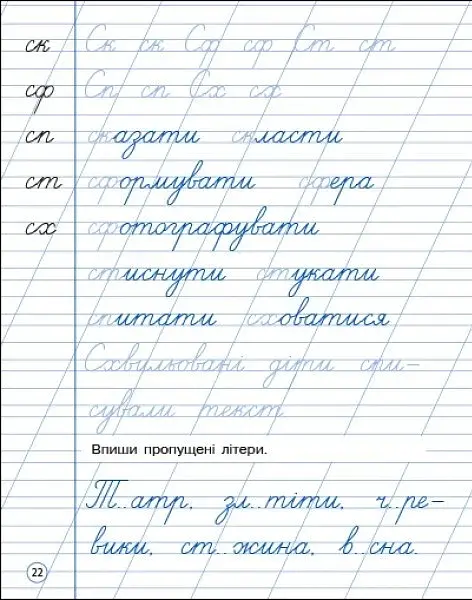 ск Ск ск Сф сф Ст ст
сф Сп сп Сх сх
сп сказати скласти
ст сформувати сфера
сх сфотографувати
стиснути стукати
спитати сховатися
Схвильовані діти спи-
сували текст
Впиши пропущені літери.
Т..атр, зл..тіти, ч..ре-
вики, ст..жина, в..сна.
22